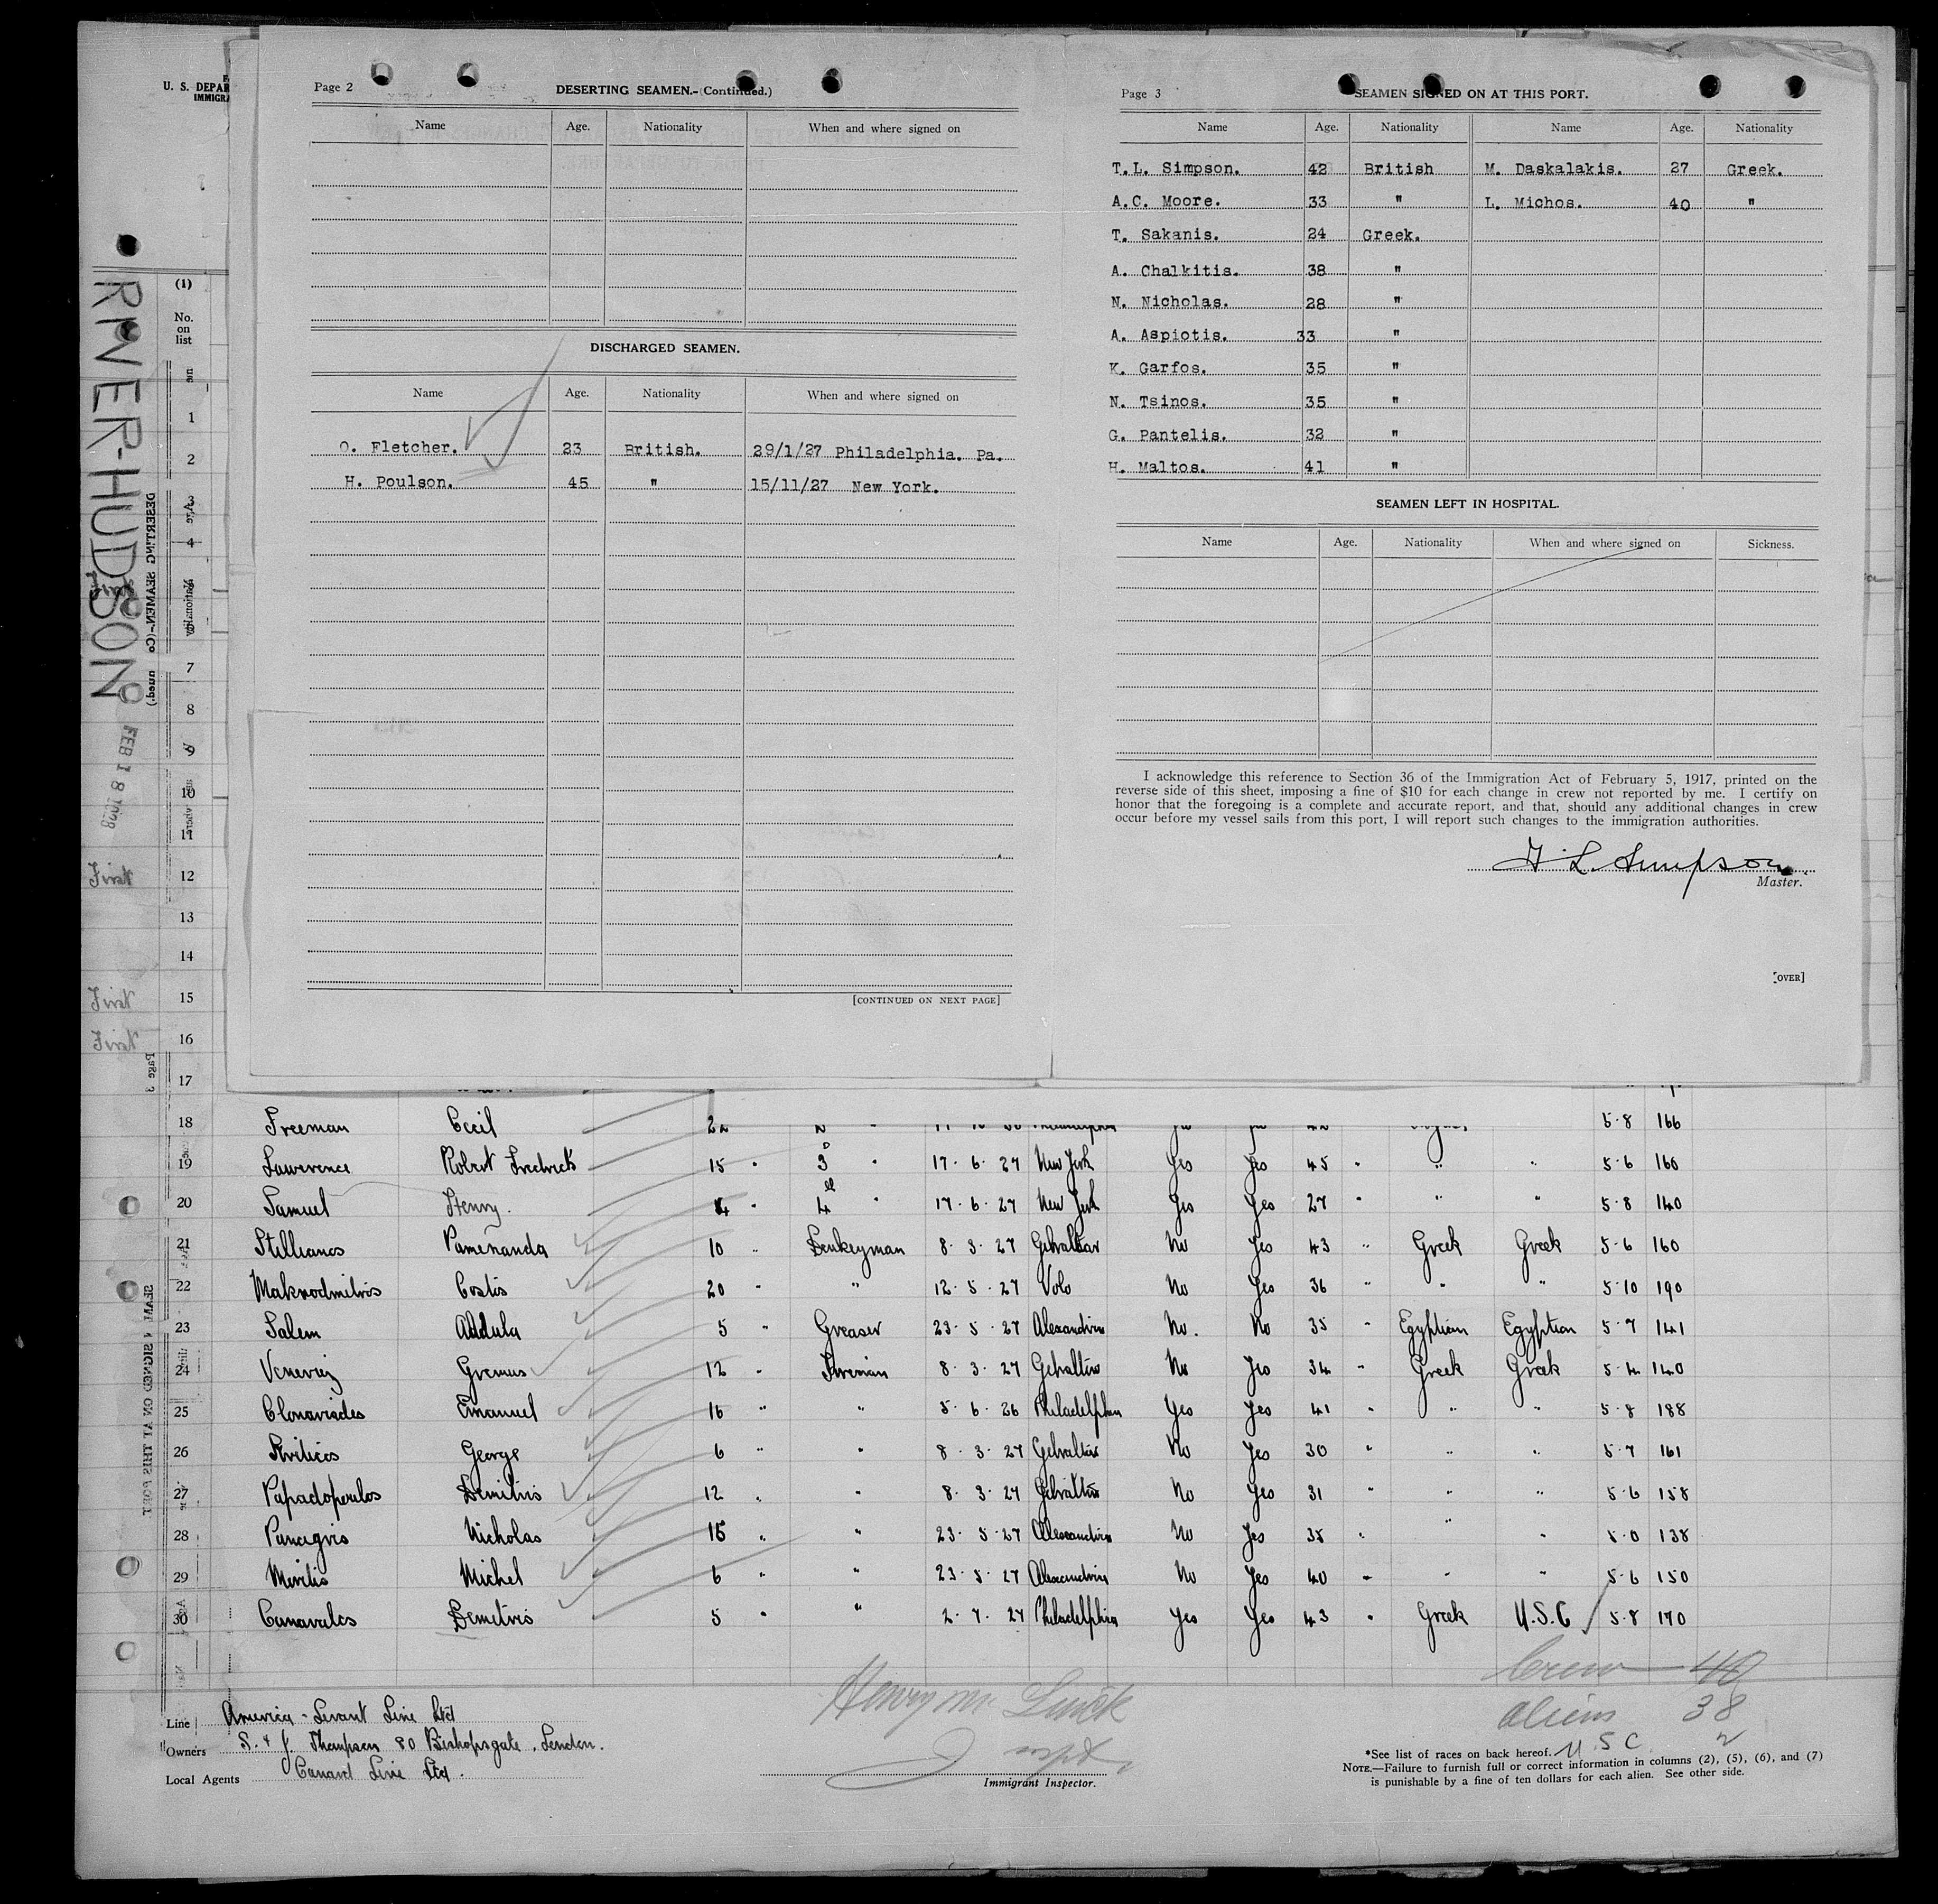 U. S. DEPAR
IMMIGRA
RIVER-HUDSON
FEB 18 1928
(1)
No.
on
list
Page 2
DESERTING SEAMEN.-(Continued.)
Name Age. Nationality When and where signed on
DISCHARGED SEAMEN.
Name Age. Nationality When and where signed on
O. Fletcher. 23 British. 29/1/27 Philadelphia. Pa.
H. Poulson. 45 " 15/11/27 New York.
[CONTINUED ON NEXT PAGE]
Page 3
SEAMEN SIGNED ON AT THIS PORT.
Name Age. Nationality Name Age. Nationality
T.L. Simpson. 42 British M. Daskalakis. 27 Greek.
A.C. Moore. 33 " L. Michos. 40 "
T. Sakanis. 24 Greek.
A. Chalkitis. 38 "
N. Nicholas. 28 "
A. Aspiotis. 33 "
K. Garfos. 35 "
N. Tsinos. 35 "
G. Pantelis. 32 "
H. Maltos. 41 "
SEAMEN LEFT IN HOSPITAL.
Name Age. Nationality When and where signed on Sickness.
I acknowledge this reference to Section 36 of the Immigration Act of February 5, 1917, printed on the
reverse side of this sheet, imposing a fine of $10 for each change in crew not reported by me. I certify on
honor that the foregoing is a complete and accurate report, and that, should any additional changes in crew
occur before my vessel sails from this port, I will report such changes to the immigration authorities.
T L Simpson
Master.
[OVER]
1
2
3
4
7
8
9
10
11
First 12
13
14
First 15
First 16
17
18 Freeman Cecil 22 2 " 5·8 166
19 Lawerence Robert Fredrick 15 " 3 " 17·6·27 New York Yes Yes 45 " " " 5·6 160
20 Samuel Henry. 4 " 4 " 17·6·27 New York Yes Yes 27 " " " 5·8 140
21 Stillianos Pamenanda 10 " Donkeyman 8·3·27 Gibraltar No Yes 43 " Greek Greek 5·6 160
22 Costis 20 " " 12·5·27 Volo No Yes 36 " " " 5·10 190
23 Salem Abdula 5 " Greaser 23·5·27 Alexandria No. No 35 " Egyptian Egyptian 5·7 141
24 Gremus 12 " Fireman 8·3·27 Gibraltar No Yes 34 " Greek Greek 5·4 140
25 Clonariades Emanuel 16 " " 5·6·26 Philadelphia Yes Yes 41 " " " 5·8 188
26 George 6 " " 8·3·27 Gibraltar No Yes 30 " " " 5·7 161
27 Papadopoulos Dimitris 12 " " 8·3·27 Gibraltar No Yes 31 " " " 5·6 158
28 Nicholas 15 " " 23·5·27 Alexandria No Yes 38 " " " 5·0 138
29 Michel 6 " " 23·5·27 Alexandria No Yes 40 " " " 5·6 150
30 Canavalos Demitris 5 " " 2·7·27 Philadelphia Yes Yes 43 " Greek U.S.C 5·8 170
Crew 40
Aliens 38
U S C 2
Line America-Levant Line Ltd
Owners S. & J. Thompson 80 Bishopsgate, London.
Local Agents Cunard Line Ltd.
Immigrant Inspector.
*See list of races on back hereof.
NOTE.—Failure to furnish full or correct information in columns (2), (5), (6), and (7)
is punishable by a fine of ten dollars for each alien. See other side.